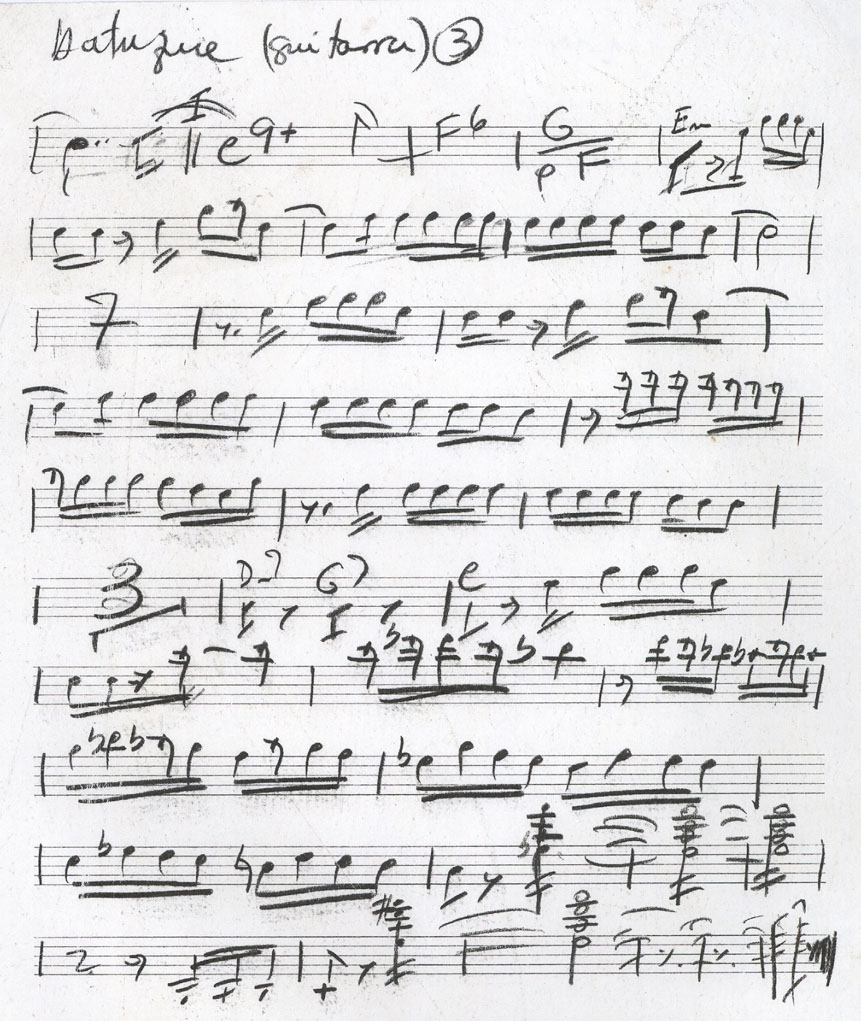 Batuque (guitarra) ③
C9+ F6 G F Em
7
3 D-7 G7 C
2